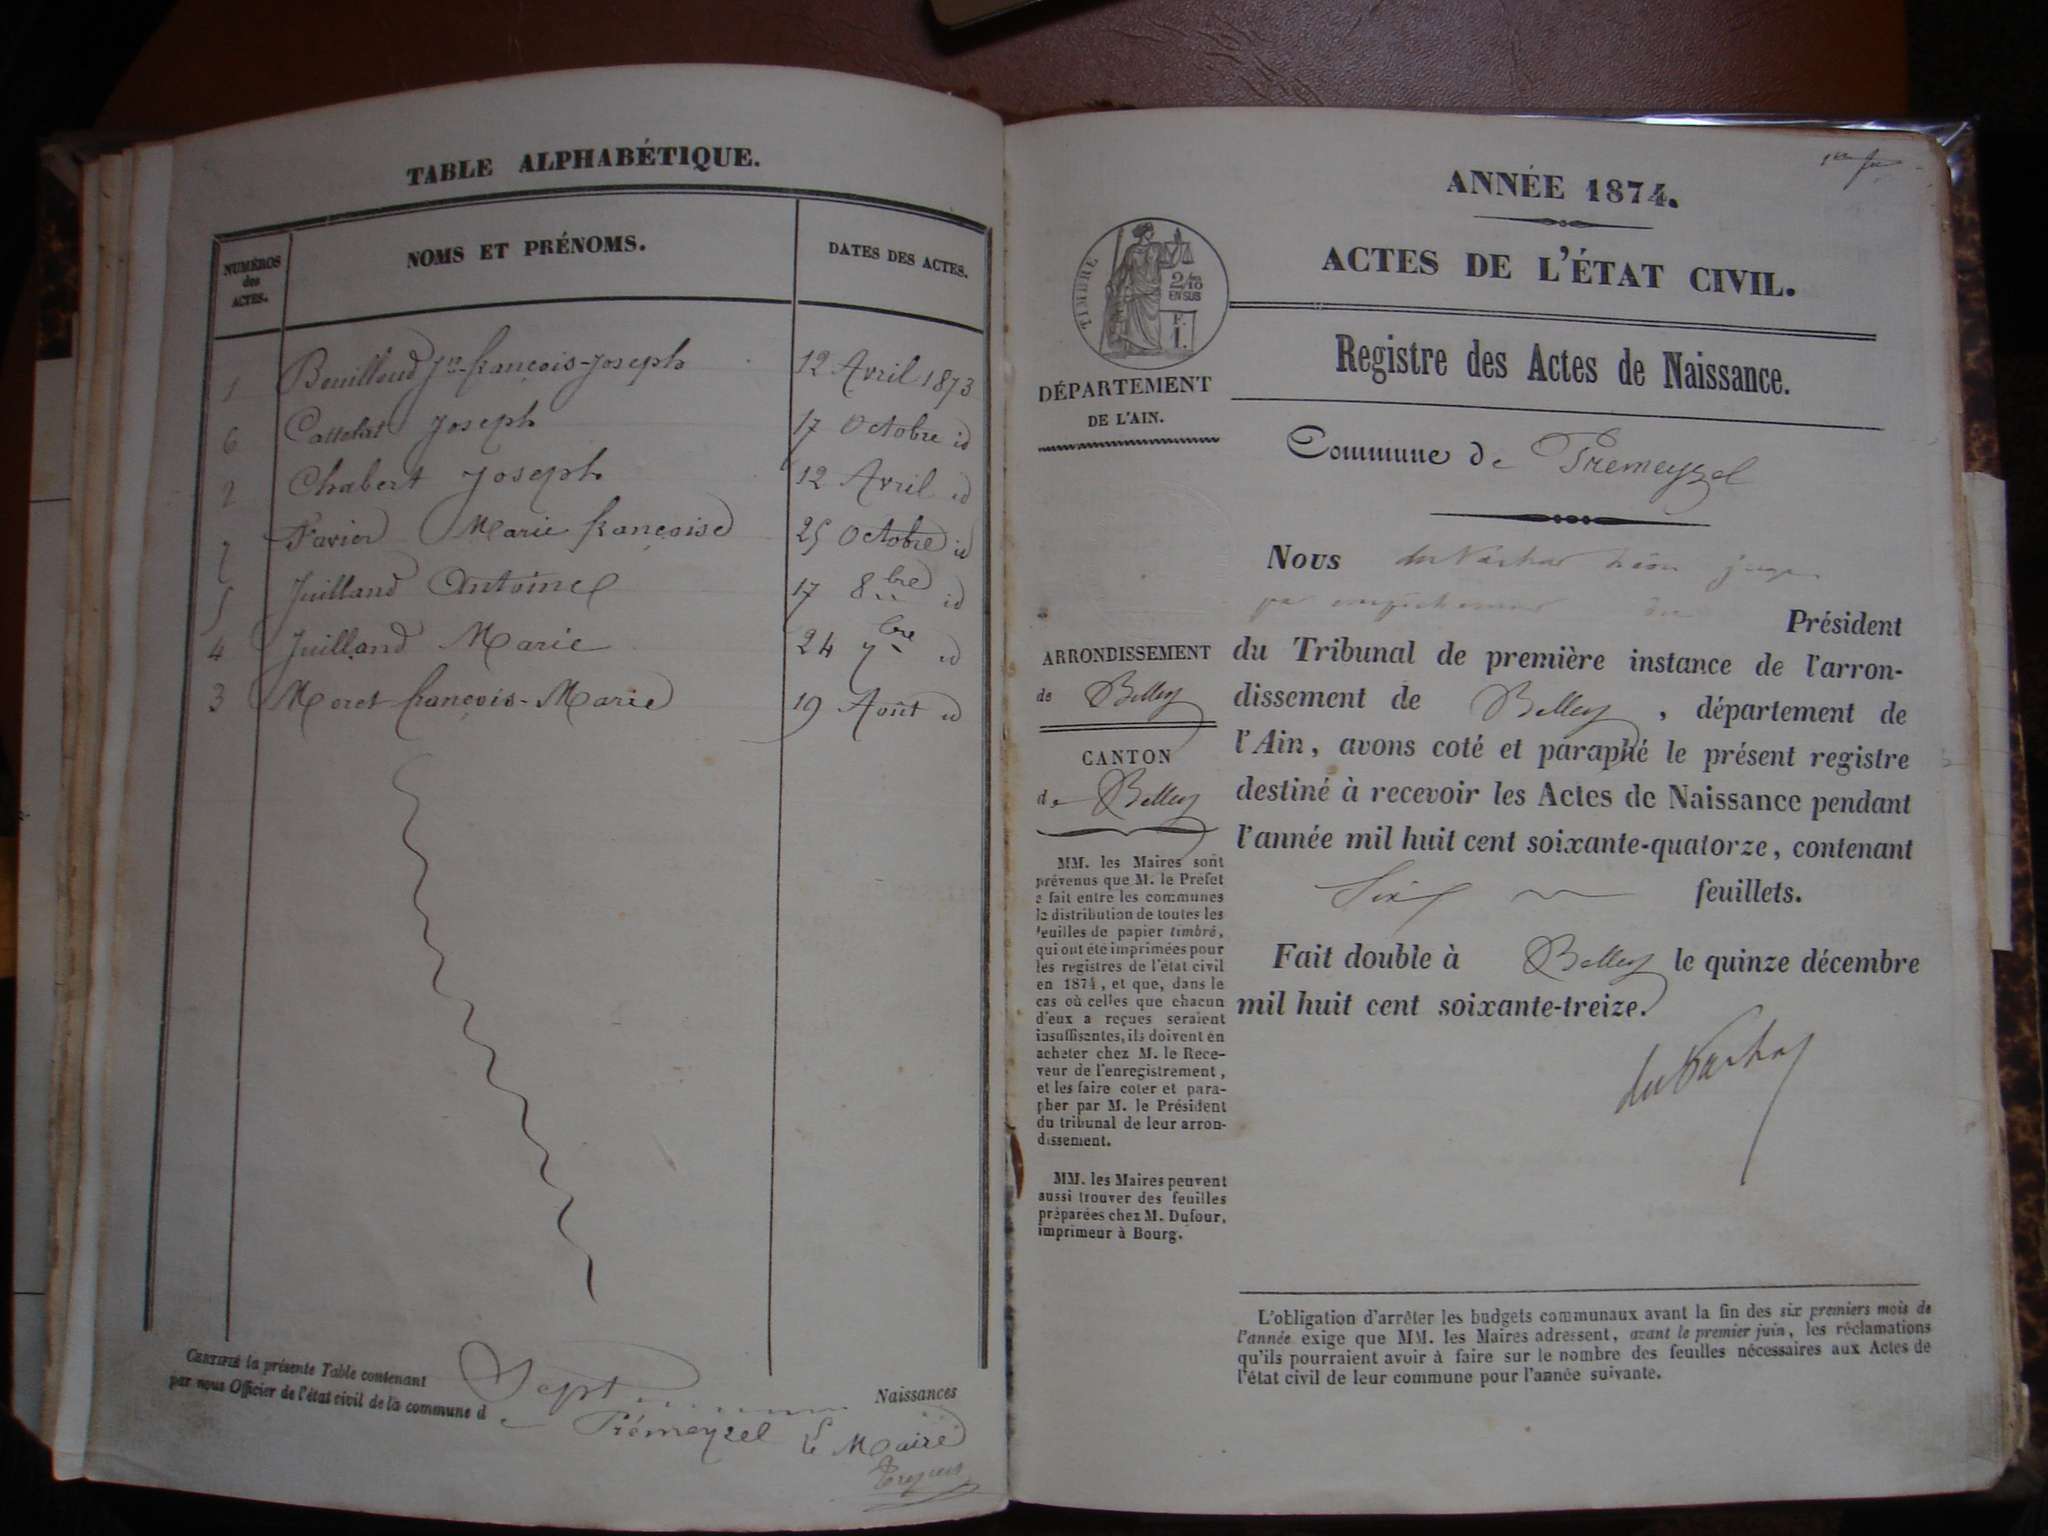 TABLE ALPHABÉTIQUE.
NUMÉROS
des
ACTES.
NOMS ET PRÉNOMS.
DATES DES ACTES.
1 Bouilloud Jn-françois-Joseph 12 Avril 1873
6 Cattelat Joseph 17 Octobre id
2 Chabert Joseph 12 Avril id
7 Favier Marie françoise 25 Octobre id
5 Juilland Antoine 17 8bre id
4 Juilland Marie 24 7bre id
3 Moret françois-Marie 19 Août id
CERTIFIÉ la présente Table contenant Sept Naissances
par nous Officier de l'état civil de la commune d e Prémeyzel Le Maire
ANNÉE 1874.
ACTES DE L'ÉTAT CIVIL.
TIMBRE
2/10
EN SUS
F.
1.
DÉPARTEMENT
DE L'AIN.
Registre des Actes de Naissance.
Commune de Premeyzel
ARRONDISSEMENT
de Belley
CANTON
de Belley
MM. les Maires sont
prévenus que M. le Préfet
a fait entre les communes
la distribution de toutes les
feuilles de papier timbré,
qui ont été imprimées pour
les registres de l'état civil
en 1874, et que, dans le
cas où celles que chacun
d'eux a reçues seraient
insuffisantes, ils doivent en
acheter chez M. le Rece-
veur de l'enregistrement,
et les faire coter et para-
pher par M. le Président
du tribunal de leur arron-
dissement.
MM. les Maires peuvent
aussi trouver des feuilles
préparées chez M. Dufour,
imprimeur à Bourg.
Nous juge
par empêchement du Président
du Tribunal de première instance de l'arron-
dissement de Belley, département de
l'Ain, avons coté et paraphé le présent registre
destiné à recevoir les Actes de Naissance pendant
l'année mil huit cent soixante-quatorze, contenant
Six feuillets.
Fait double à Belley le quinze décembre
mil huit cent soixante-treize.
L'obligation d'arrêter les budgets communaux avant la fin des six premiers mois de
l'année exige que MM. les Maires adressent, avant le premier juin, les réclamations
qu'ils pourraient avoir à faire sur le nombre des feuilles nécessaires aux Actes de
l'état civil de leur commune pour l'année suivante.